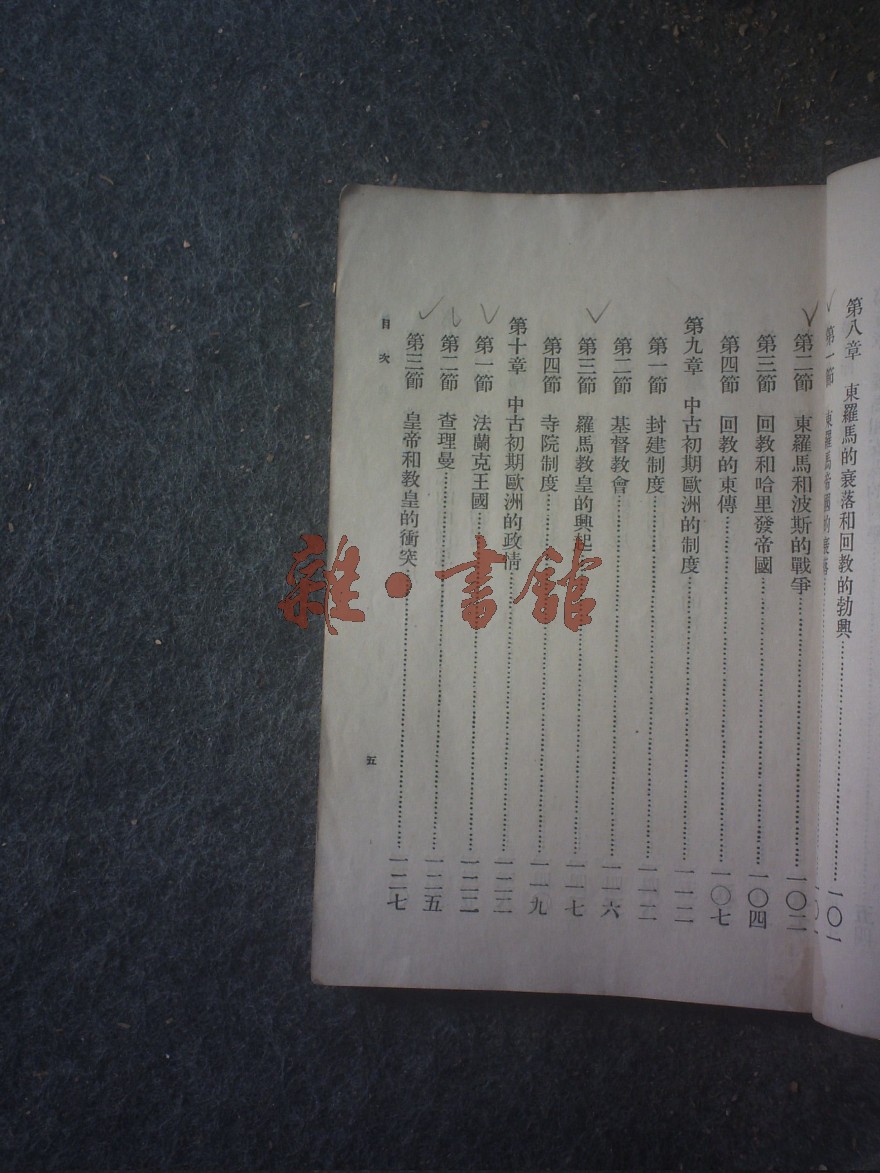 第八章　東羅馬的衰落和回教的勃興……一〇一
第一節　東羅馬帝國的衰落……一〇一
第二節　東羅馬和波斯的戰爭……一〇二
第三節　回教和哈里發帝國……一〇四
第四節　回教的東傳……一〇七
第九章　中古初期歐洲的制度……一一二
第一節　封建制度……一一二
第二節　基督教會……一一六
第三節　羅馬教皇的興起……一一七
第四節　寺院制度……一一九
第十章　中古初期歐洲的政情……一二二
第一節　法蘭克王國……一二二
第二節　查理曼……一二五
第三節　皇帝和教皇的衝突……一二七
目次
五
雜·書館